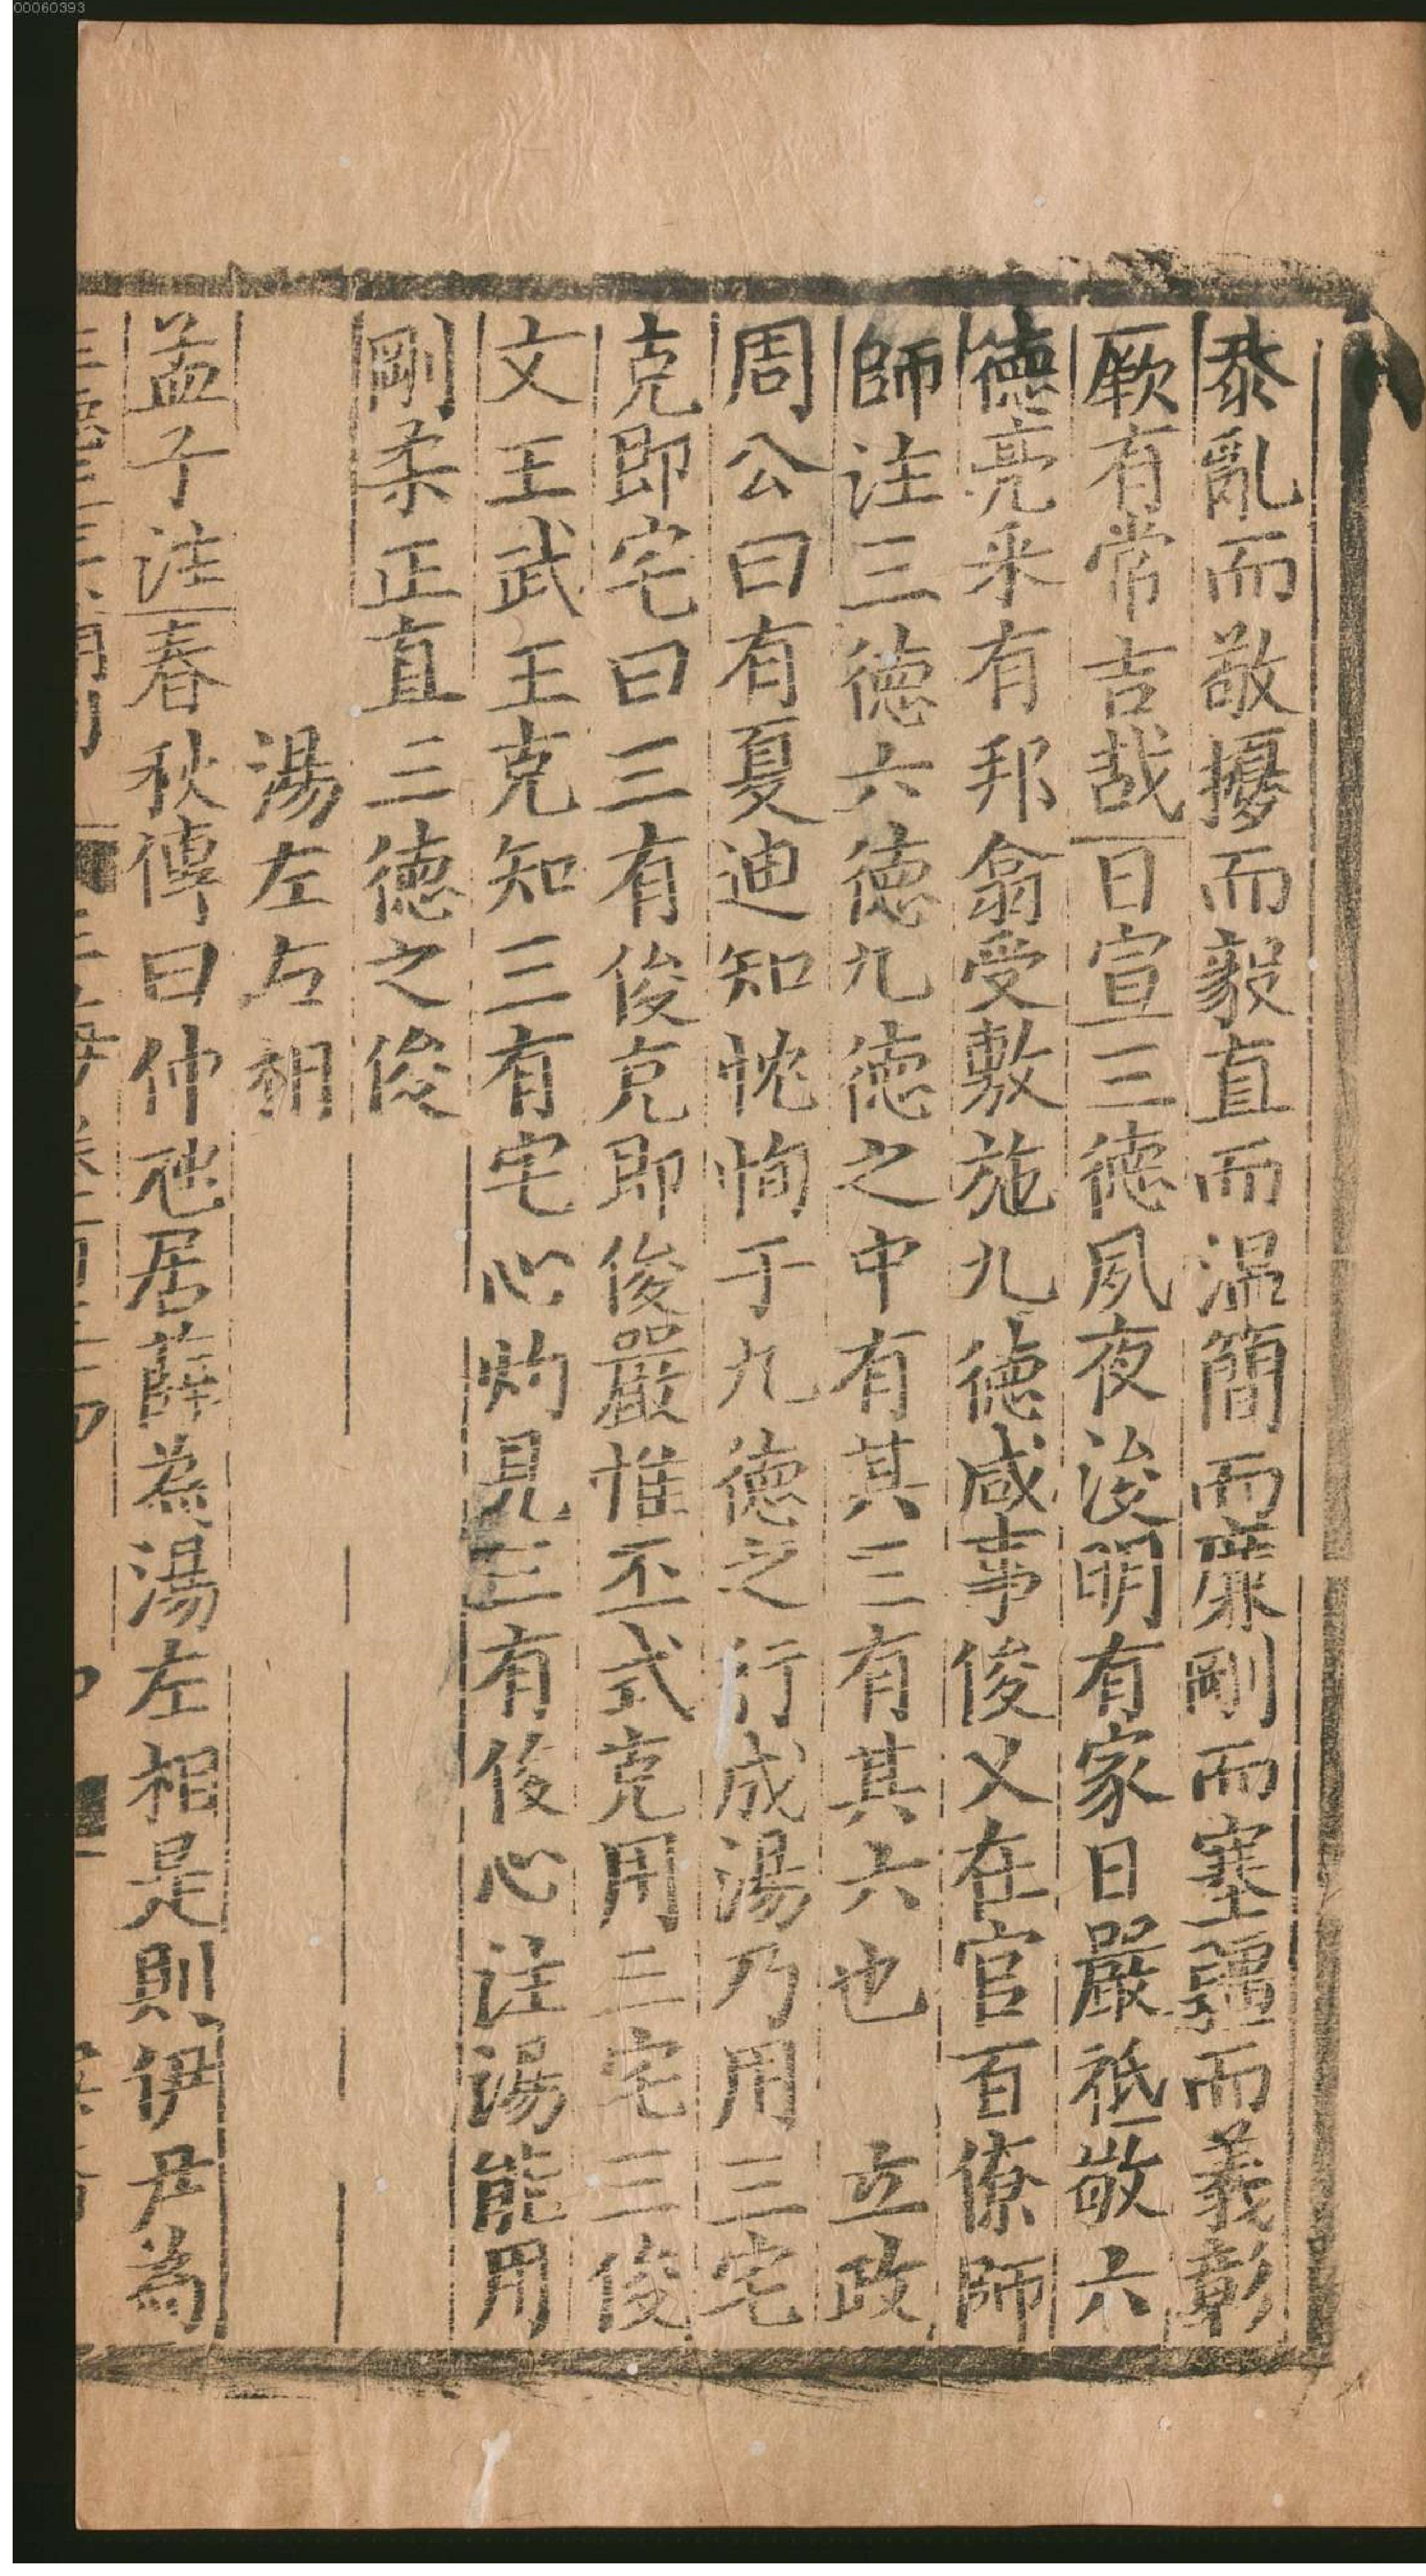 00060393
㳟亂而敬擾而毅直而温簡而廉剛而塞彊而義彰
厥有常吉哉日宣三德夙夜浚明有家日嚴祗敬六
德亮采有邦翕受敷施九德咸事俊乂在官百僚師
師注三德六德九德之中有其三有其六也　立政
周公曰有夏迪知忱恂于九德之行成湯乃用三宅
克即宅曰三有俊克即俊嚴惟丕式克用三宅三俊
文王武王克知三有宅心灼見三有俊心注湯能用
剛柔正直三德之俊
湯左右相
孟子注春秋傳曰仲虺居薛為湯左相是則伊尹為